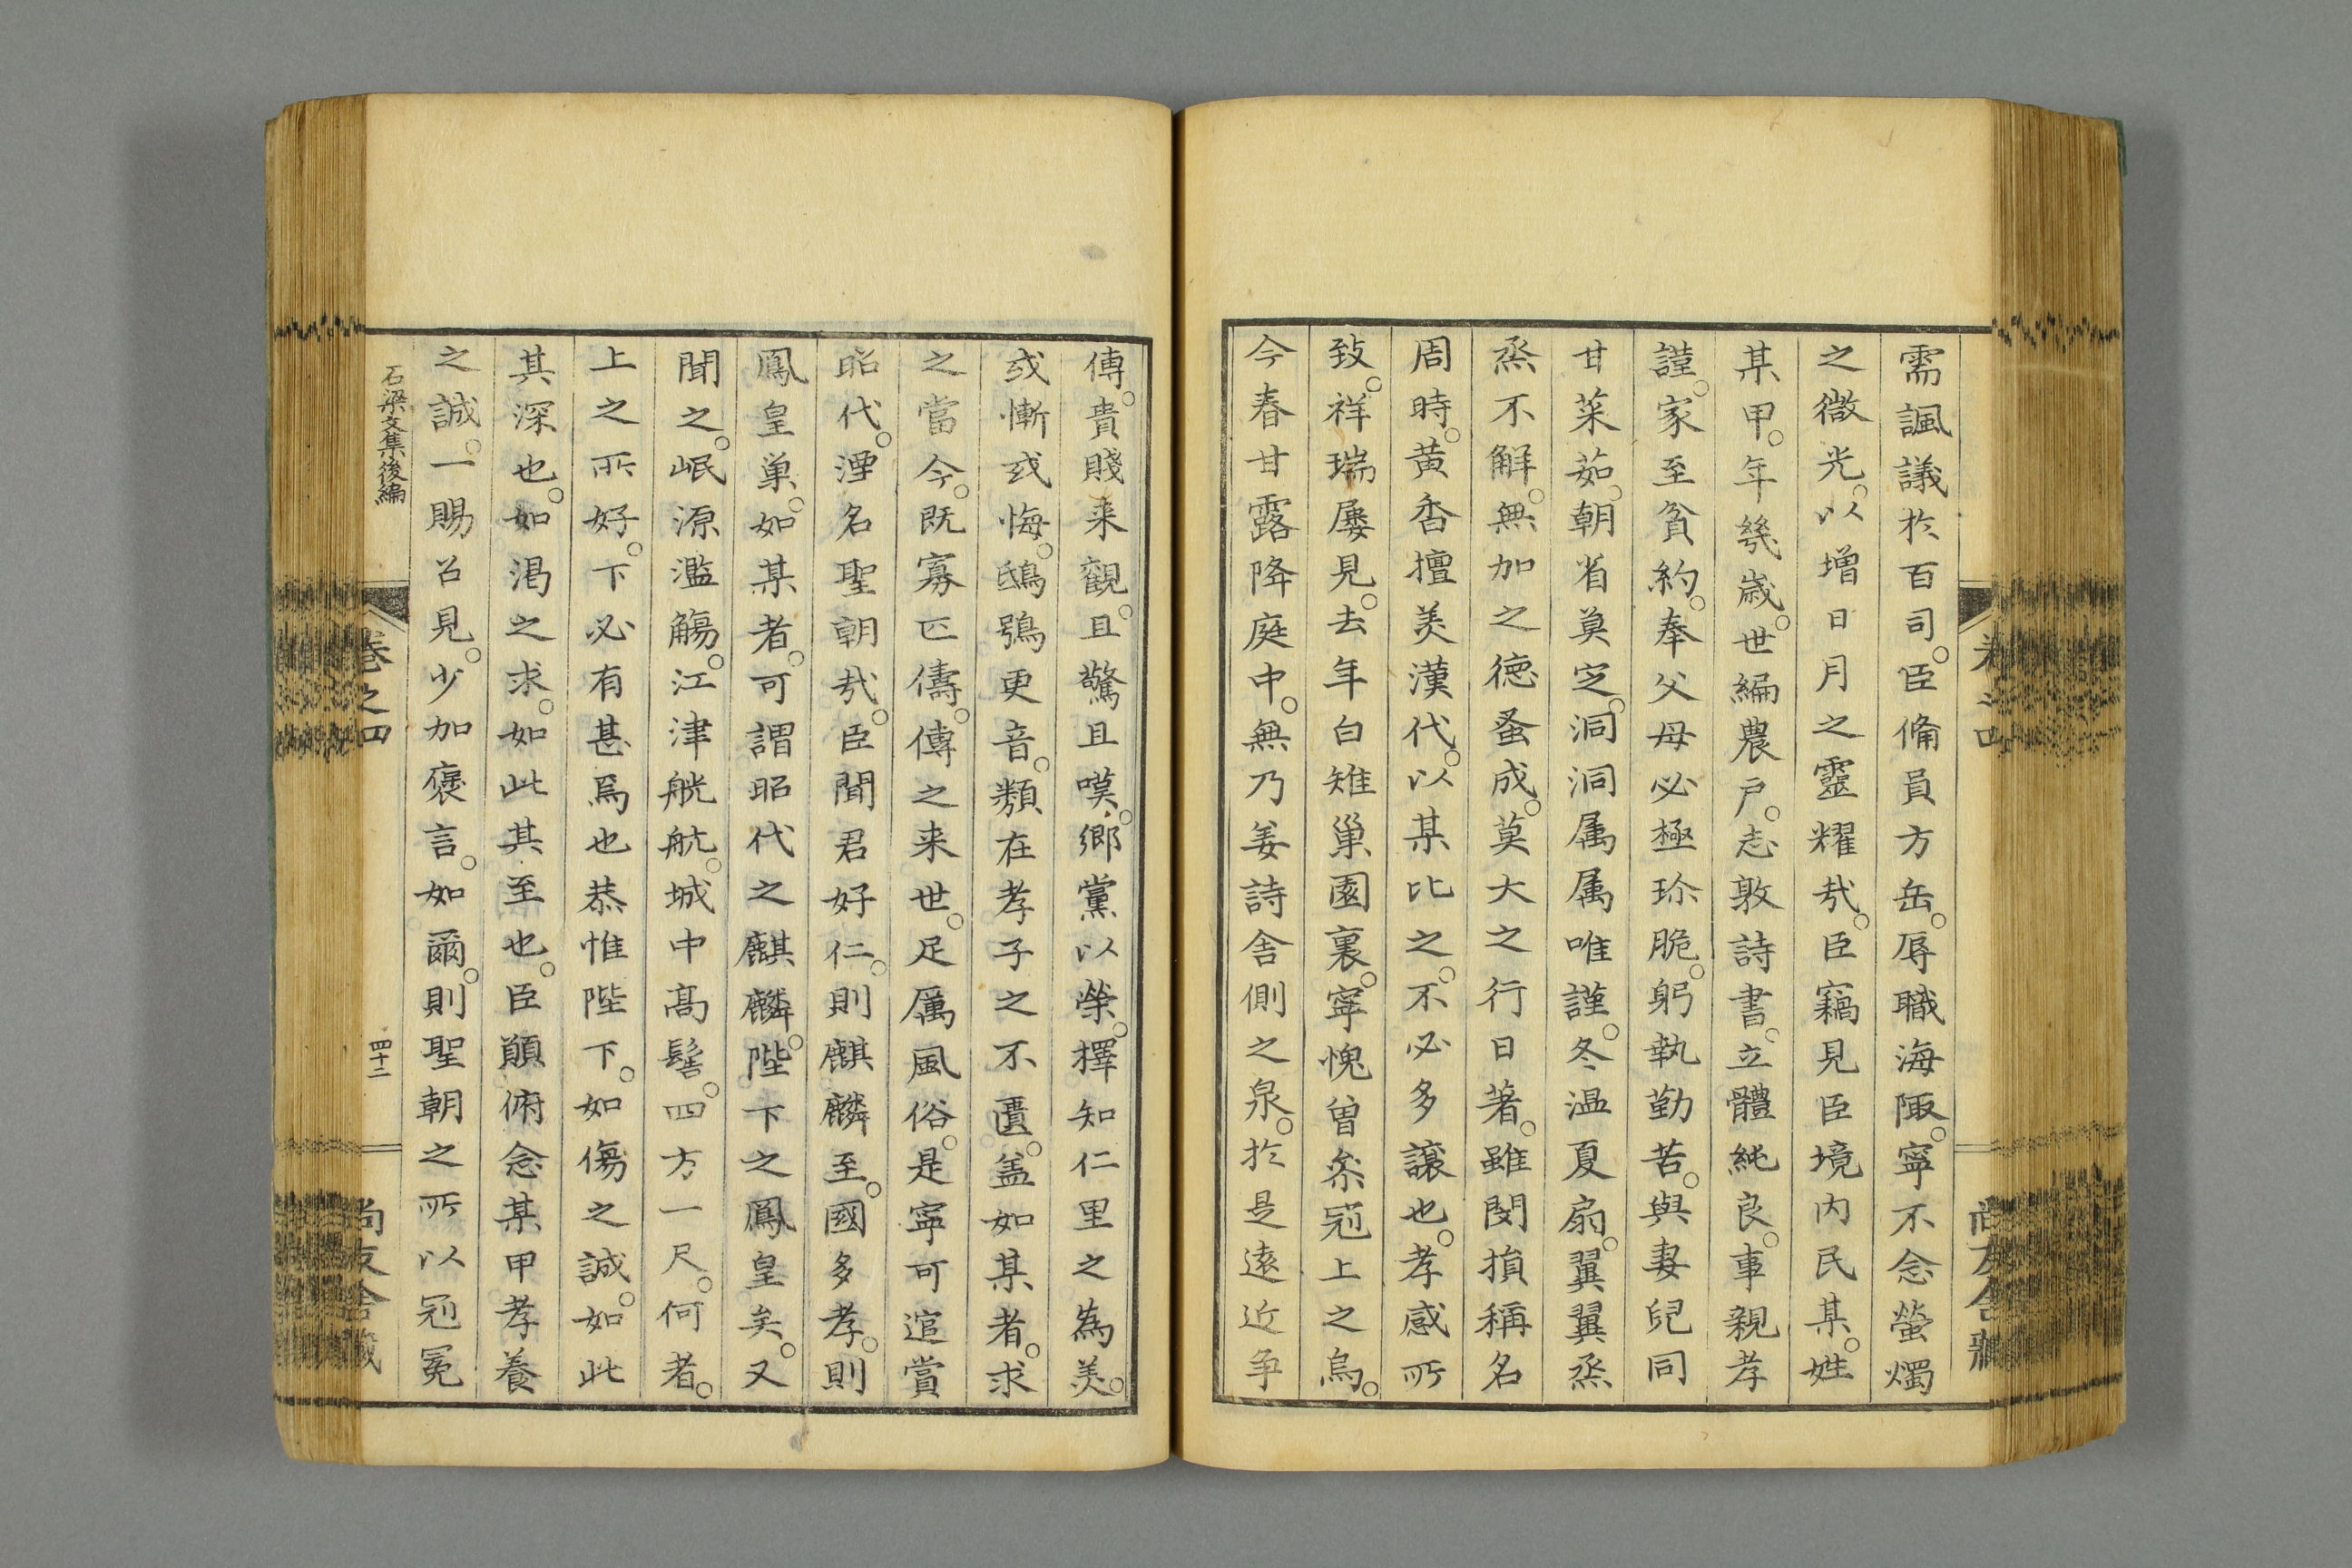 需諷議於百司。臣備員方岳。辱職海陬。寧不念螢燭
之微光。以增日月之靈耀哉。臣竊見臣境内民某。姓
某甲。年幾歳。世編農戸。志敦詩書。立體純良。事親孝
謹。家至貧約。奉父母必極珍脆。躬執勤苦。與妻兒同
甘菜茹。朝省莫定。洞洞属属唯謹。冬温夏扇。翼翼烝
烝不解。無加之徳蚤成。莫大之行日著。雖閔損稱名
周時。黄香擅美漢代。以某比之。不必多讓也。孝感所
致。祥瑞屡見。去年白雉巢園裏。寧愧曽參冠上之烏。
今春甘露降庭中。無乃姜詩舎側之泉。於是遠近争
傳。貴賤来觀。且驚且嘆。郷黨以榮。擇知仁里之為美。
或慚或悔。鴟鴞更音。類在孝子之不匱。盖如某者。求
之當今。既寡匹儔。傳之来世。足厲風俗。是寧可逭賞
昭代。湮名聖朝哉。臣聞君好仁。則麒麟至。國多孝。則
鳳皇巣。如某者。可謂昭代之麒麟。陛下之鳳皇矣。又
聞之。岷源濫觴。江津觥航。城中髙髻。四方一尺。何者。
上之所好。下必有甚焉也恭惟陛下。如傷之誠。如此
其深也。如渇之求。如此其至也。臣願俯念某甲孝養
之誠。一賜召見。少加褒言。如爾。則聖朝之所以冠冕
石梁文集後編
巻之四
四十二
尚友舎藏